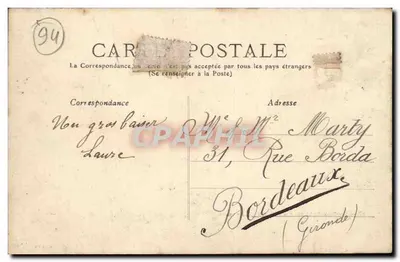 94
CARTE POSTALE
La Correspondance au recto n'est pas acceptée par tous les pays étrangers
(Se renseigner à la Poste)
Correspondance
Adresse
Un gros baiser
Laure
Me & Mr Marty
31, Rue Borda
Bordeaux
(Gironde)
CARTES